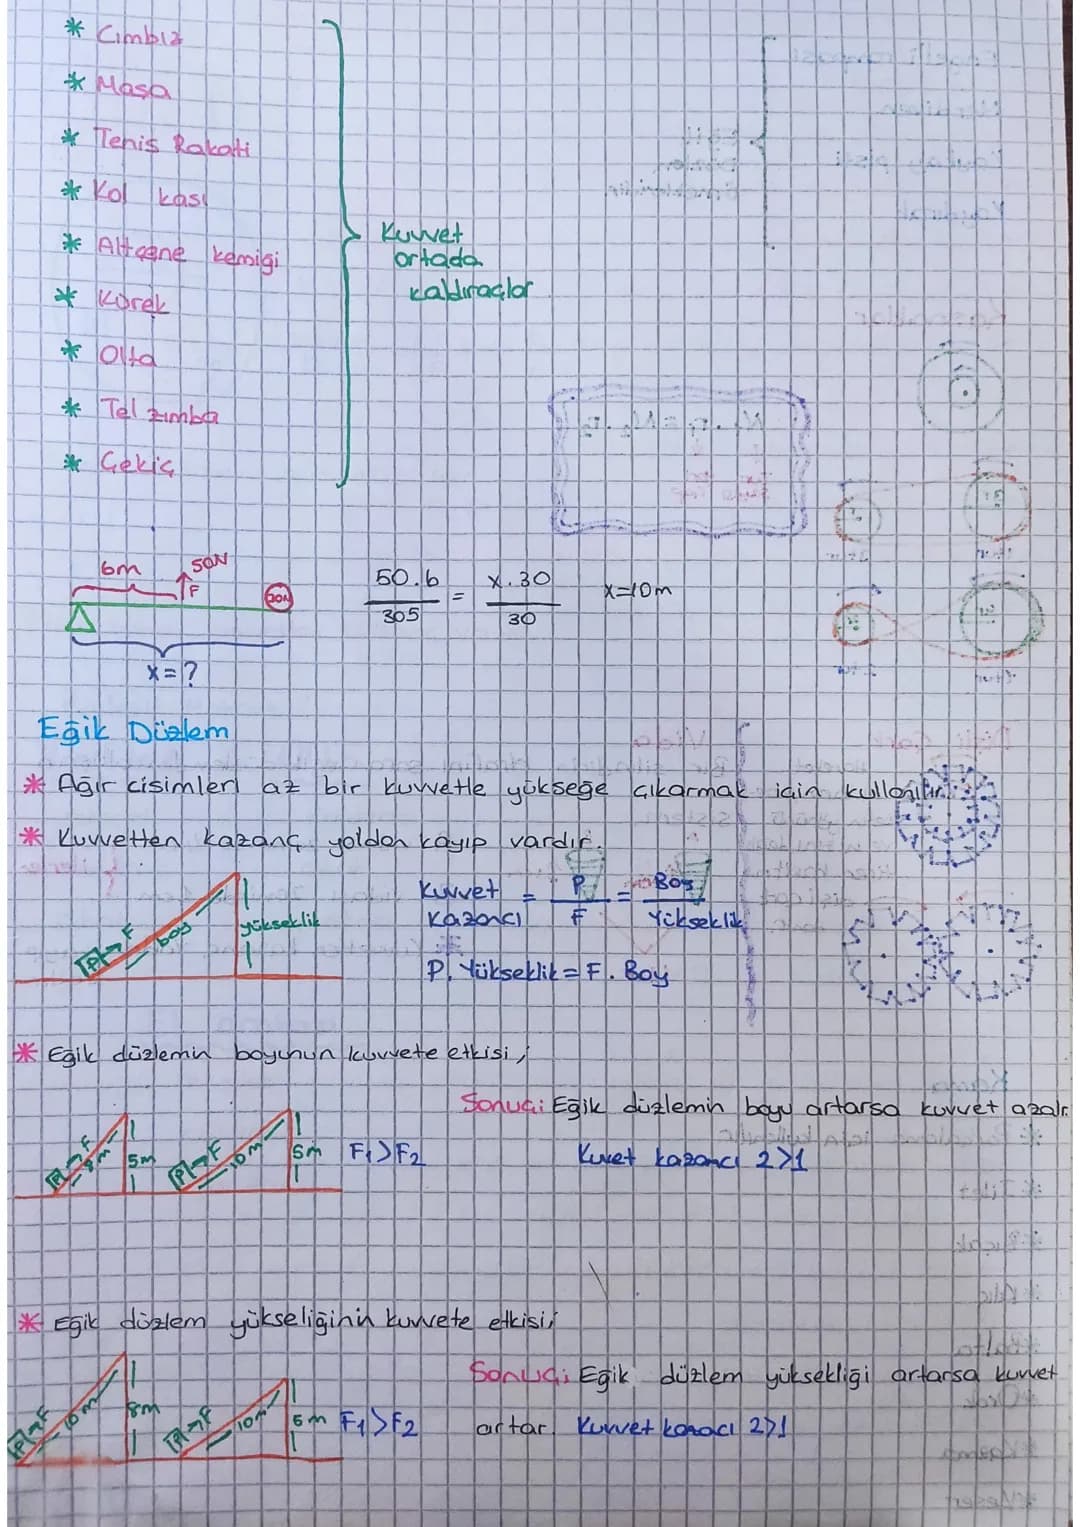 * Cımbız
* Maşa
* Tenis Raketi
* Kol kası
* Altçene kemiği
* Kürek
* Olta
* Tel zımba
* Çekiç
Kuvvet
ortada
kaldıraçlar
6m
50N
F
30N
x=?
50.6 / 305 = x.30 / 30
x=10m
Eğik Düzlem
* Ağır cisimleri az bir kuvvetle yükseğe çıkarmak için kullanılır.
* Kuvvetten kazanç yoldan kayıp vardır.
P F
boy
yükseklik
Kuvvet Kazancı = P / F = Boy / Yükseklik
P. Yükseklik = F. Boy
* Eğik düzlemin boyunun kuvvete etkisi;
P F
8m
5m
P F
10m
5m
F1>F2
Sonuç; Eğik düzlemin boyu artarsa kuvvet azalır.
Kuvet kazancı 2>1
* Eğik düzlem yükseliğinin kuvvete etkisi;
P F
10m
8m
P F
10m
6m
F1>F2
Sonuç; Eğik düzlem yüksekliği artarsa kuvvet
artar. Kuvvet kazacı 2>1